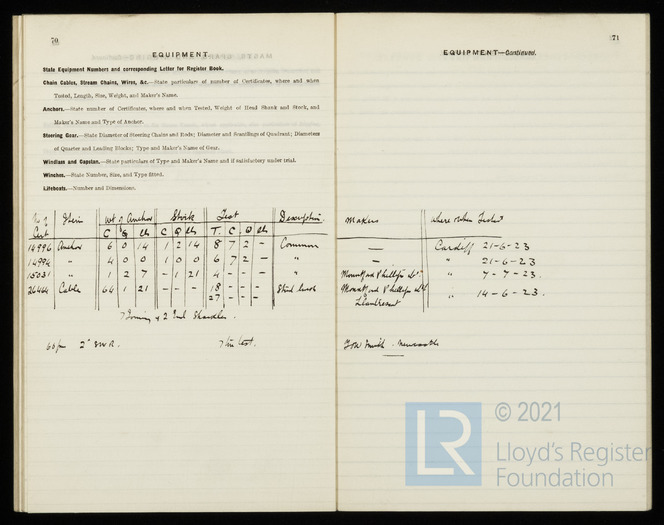 70
EQUIPMENT
State Equipment Numbers and corresponding Letter for Register Book.
Chain Cables, Stream Chains, Wires, &c.—State particulars of number of Certificates, where and when
Tested, Length, Size, Weight, and Maker's Name.
Anchors.—State number of Certificates, where and when Tested, Weight of Head Shank and Stock, and
Maker's Name and Type of Anchor.
Steering Gear.—State Diameter of Steering Chains and Rods; Diameter and Scantlings of Quadrant; Diameters
of Quarter and Leading Blocks; Type and Maker's Name of Gear.
Windlass and Capstan.—State particulars of Type and Maker's Name and if satisfactory under trial.
Winches.—State Number, Size, and Type fitted.
Lifeboats.—Number and Dimensions.
No of Cert Item Wt of Anchor Stock Test Description
C Q lbs C Q lbs T. C. Q lbs
14996 Anchor 6 0 14 1 2 14 8 7 2 - Common
14994 " 4 0 0 1 0 0 6 7 2 - "
15031 " 1 2 7 - 1 21 4 - - - "
26444 Cable 64 1 21 - - - 18 - - - Stud link
27 - - -
7 Joining & 2 End Shackles.
60 fm 2" SWR. 7 tin test.
71
EQUIPMENT—Continued.
Makers Where & When Tested
— Cardiff 21-6-23
— " 21-6-23
" 7-7-23.
" 14-6-23.
Llantrisant
Smith. Newcastle
LR
© 2021
Lloyd's Register
Foundation